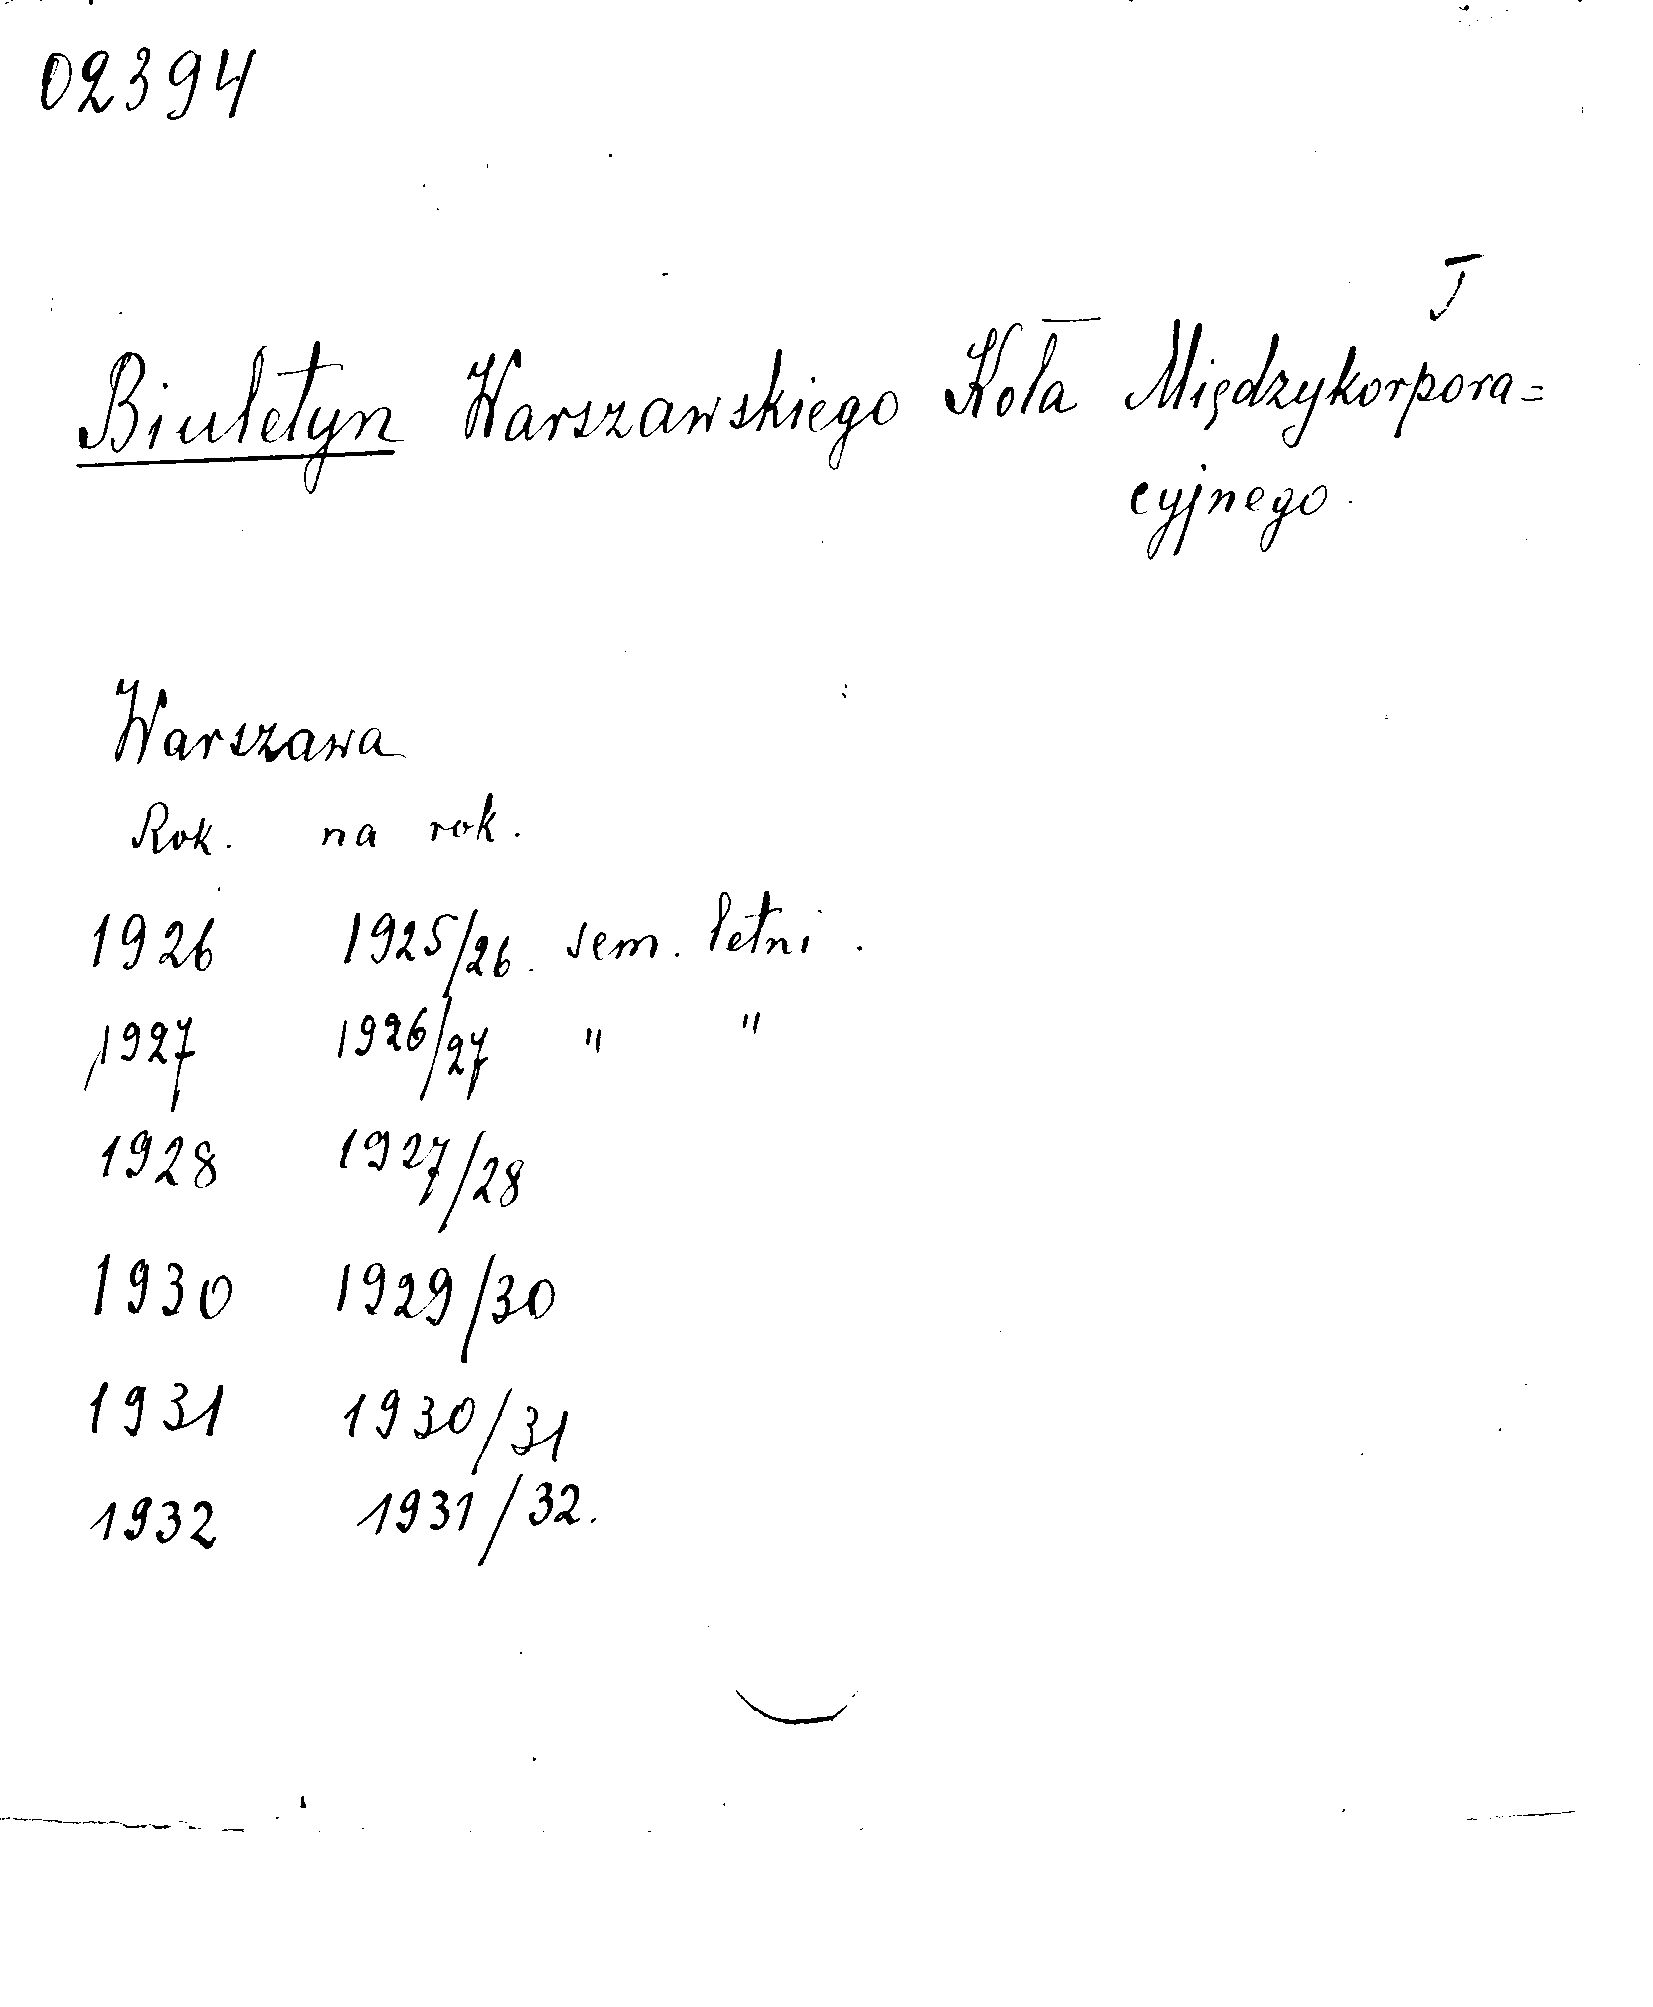 02394
I
Biuletyn Warszawskiego Koła Międzykorpora=
cyjnego.
Warszawa
Rok. na rok.
1926 1925/26. sem. letni.
1927 1926/27 " "
1928 1927/28
1930 1929/30
1931 1930/31
1932 1931/32.